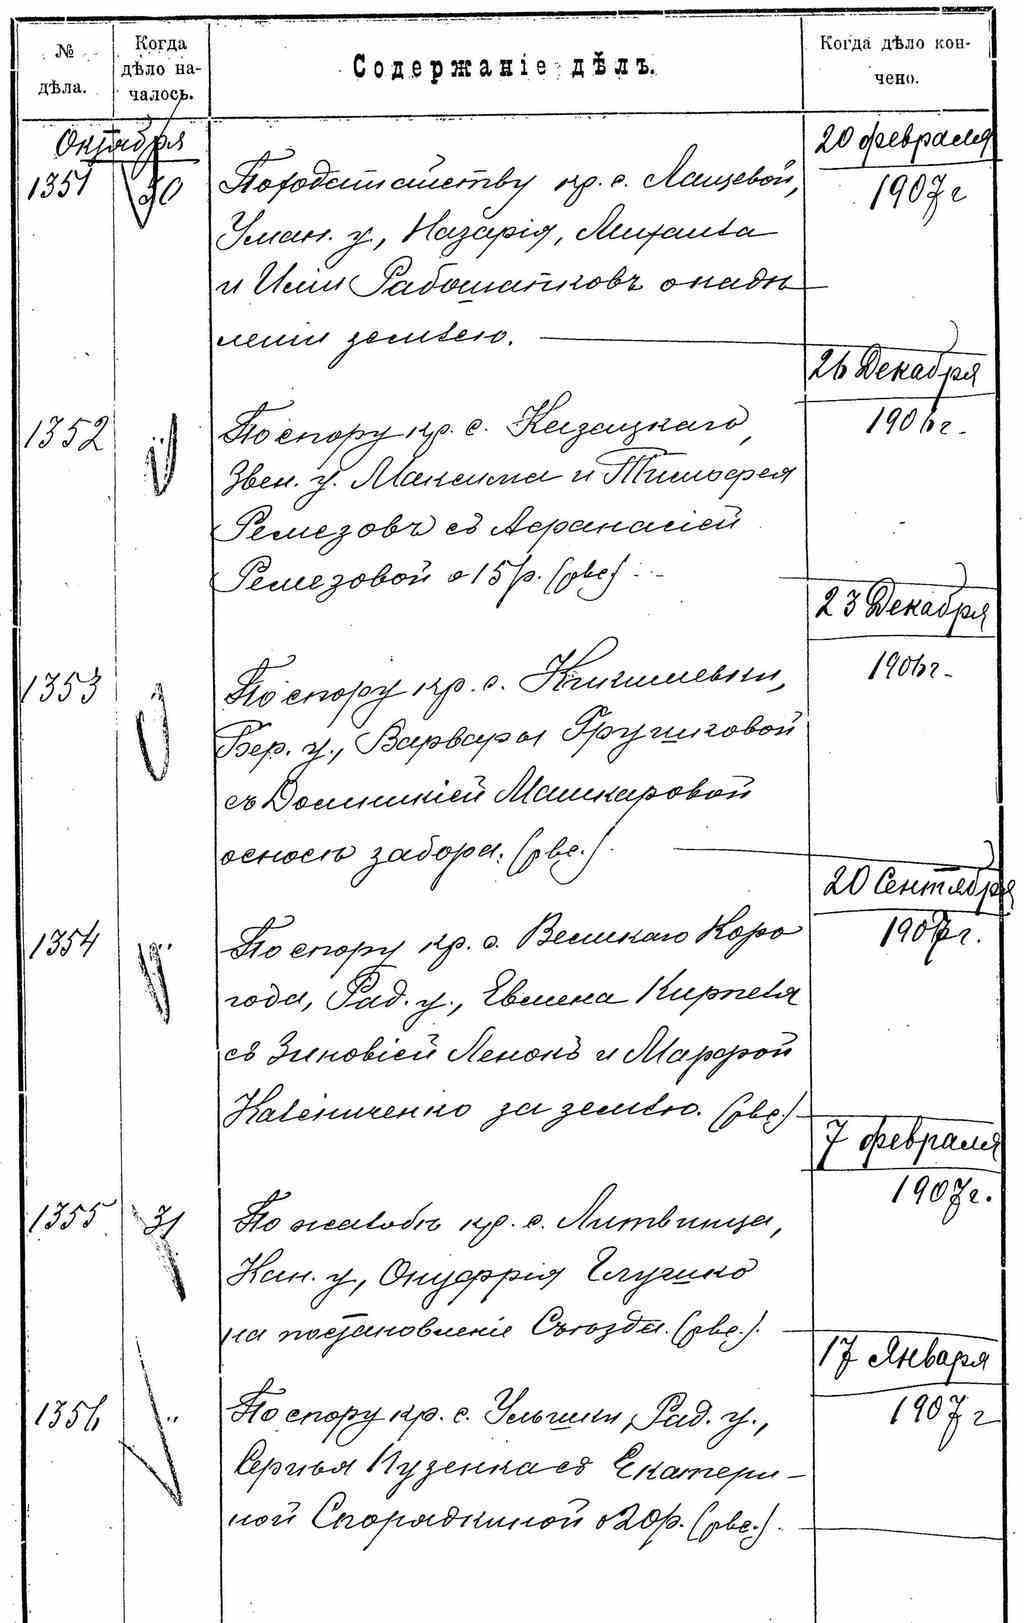 № дѣла.
Когда дѣло на-
чалось.
Содержаніе дѣлъ.
Когда дѣло кон-
чено.
Октября
1351
30
По ходатайству кр. с. Лащевой,
Уман. у., Назарія, Михаила
и Иліи Рабошапковъ о надѣ
леніи землею.
20 февраля
1907 г
1352
"
По спору кр. с. Казацкаго,
Звен. у. Максима и Тимофея
Ремезовъ съ Афанасіей
Ремезовой о 15 р. (рвс.)
26 Декабря
1906 г.
1353
"
По спору кр. с.
Бер. у., Варвары Грушковой
съ Домникіей Машкаровой
о сносѣ забора. (рвс.).
23 Декабря
1906 г.
1354
"
По спору кр. с. Великаго Коро
года, Рад. у., Евмена Кирпеля
съ Зиновіей Ленокъ и Марфой
Калениченко за землю. (рвс.)
20 Сентября
1907 г.
1355
31
По жалобѣ кр. с. Литвинца,
Кан. у., Онуфрія Глушко
на постановленіе Съѣзда. (рвс.).
7 февраля
1907 г.
1356
"
По спору кр. с. Ульшки, Рад. у.,
Сергѣя Пузенка съ Екатери-
ной Спорядкиной о 20 р. (рвс.).
17 Января
1907 г